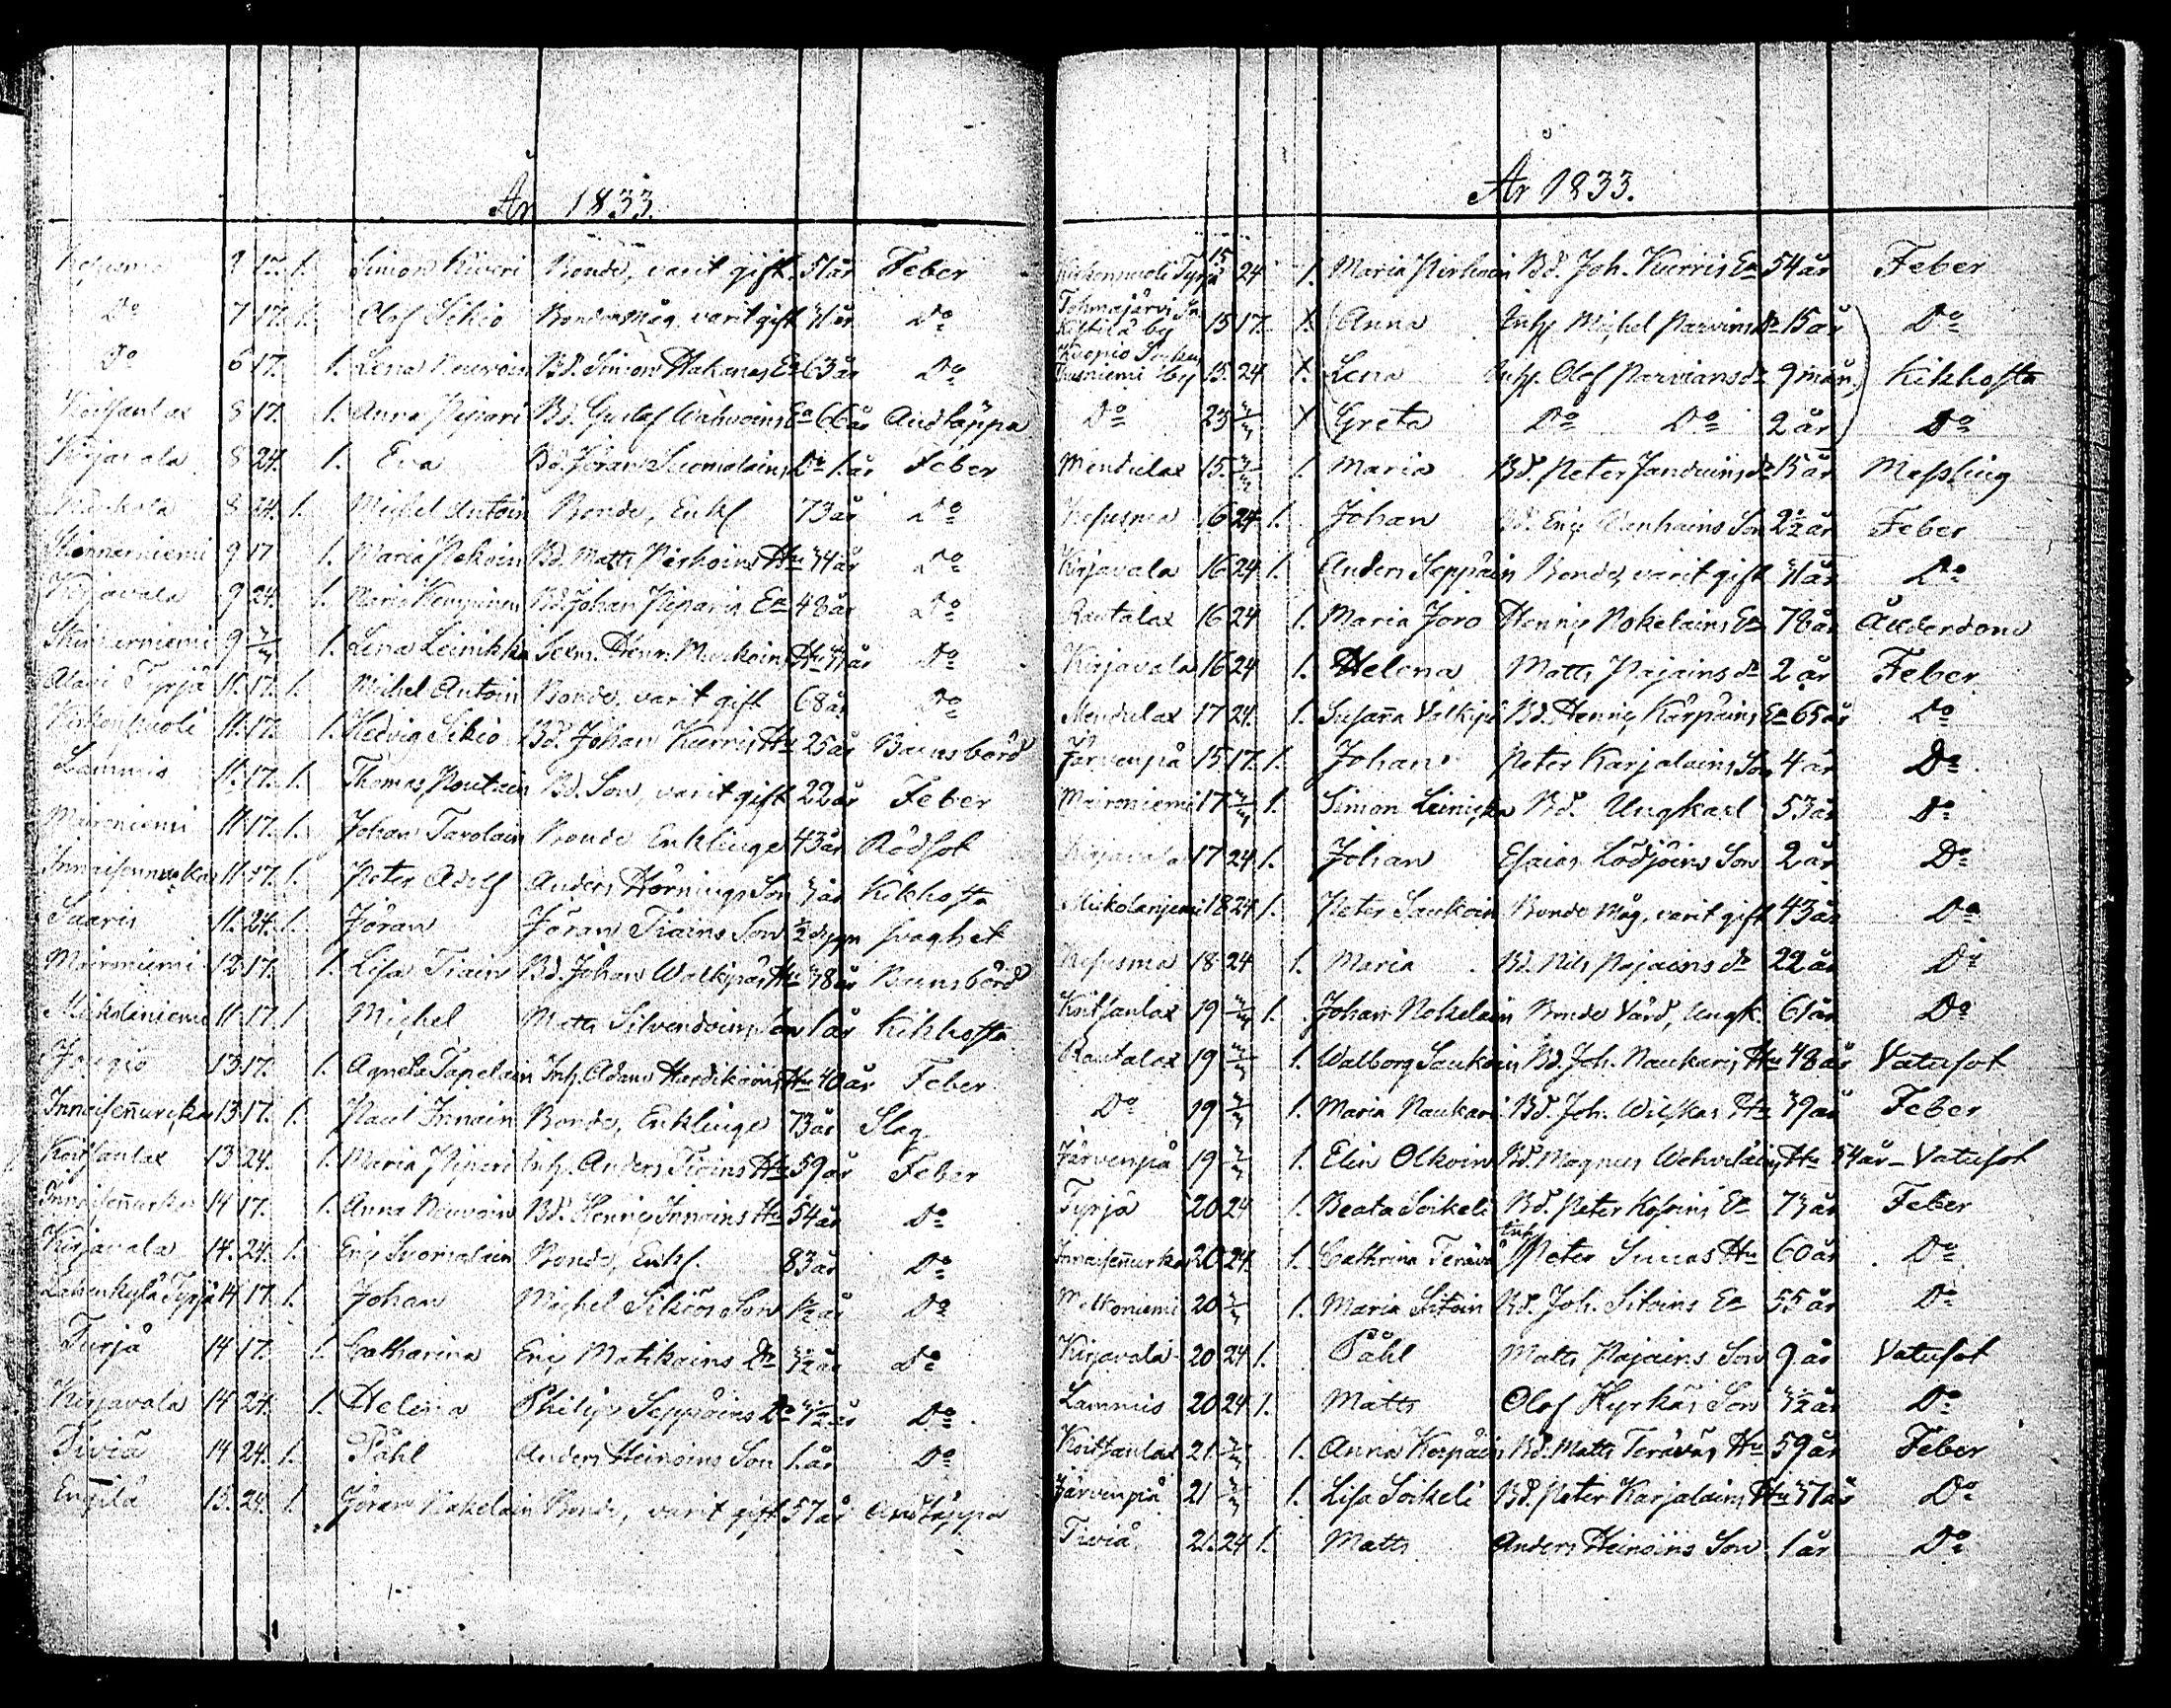 År 1833.
9 17. 1. Simon Kuvri Bonde, varit gift 51 år Feber
Do 7 17. 1. Olof Sikiö Bondemåg, varit gift 41 år Do
Do 6 17. 1. Lena Neuvoin Bd. Simon Hakanas Ea 63 år Do
Koitsanlax 8 17. 1. Anna Pipari Bd. Gustaf Ea 66 år Andtäppa
Kirjavala 8 24. 1. Eva Bd. Jöran Suomalains Dr 1 år Feber
8 24. 1. Michel Antoin Bonde, Enkl 73 år Do
9 17 1. Maria Pekoin Bd. Matts Pirhoins Hu 44 år Do
Kirjavala 9 24. 1. Maria Kemppinen Bd. Johan Piparis Ea 48 år Do
9 1. Lena Leinikka Sexm. Henr. Hu 41 år Do
Alari Tyrjä 11. 17. 1. Michel Antoin Bonde, varit gift 68 år Do
Kirkonpuoli 11. 17. 1. Hedvig Sikiö Bd. Johan Kurris Hu 25 år Barnsbörd
Lammis 11. 17. 1. Thomas Poutiain Bd. Son, varit gift 22 år Feber
Maironiemi 11. 17. 1. Johan Tavolain Bonde Enklinge 43 år Rödsot
11. 17. 1. Peter Adolf Anders Hornings Son år Kikhosta
Saaris 11. 24. 1. Jöran Jöran Tiains Son 1/2 dygn svaghet
Maironiemi 12 17. 1. Lisa Tiain Bd. Johan Walkipäs Hu 38 år Barnsbörd
Mikolaniemi 11. 17. 1 Michel Matts Silvendoins Son 1 år Kikhosta
Jougio 13 17. 1. Agneta Tapelain Inh. Adam Hardikoins Hu 40 år Feber
Innaisennurkka 13 17. 1. Paul Innain Bonde, Enklinge 73 år Slag
Koitsanlax 13 24. 1. Maria Pipari Inh. Anders Tiains Hu 59 år Feber
Innaisennurkka 14 17. 1. Anna Neuvoin Bd. Henric Innains Hu 54 år Do
Kirjavala 14. 24. 1. Eric Suomalain Bonde, Enkl. 83 år Do
Lahenkylä Tyrjä 14 17. 1. Johan Michel Sikiös Son 1 1/2 år Do
Tyrjä 14 17. 1. Catharina Eric Matikains Dr 1/2 år Do
Kirjavala 14 24. 1. Helena Philip Seppäins Dr 1/2 år Do
Tiviä 14 24. 1. Påhl Anders Heinoins Son 1 år Do
Engilä 15. 24. 1. Jöran Nokelain Bonde, varit gift 57 år Andtäppa
År 1833.
Kirkonpuoli Tyrjä 15 24 1. Maria Pirhoin Bd. Joh. Kurris Ea 54 år Feber
Tohmajärvi Sn
Kiltilä by 15 17. 1. Anna Inh. Michel Parvians Dr 15 år Do
Kuopio Socken
Tusniemi by 15. 24 1. Lena Inh. Olof Parvians dr 9 mån, Kikhosta
Do 23 1 Greta Do Do 2 år Do
Mendulax 15. 1. Maria Bd. Peter Jandunins dr 15 år Messling
Kesusma 16 24 1. Johan Bd. Eric Wanhains Son 2 1/2 år Feber
Kirjavala 16 24 1. Anders Seppäin Bonde, varit gift 41 år Do
Rautalax 16 24 1. Maria Joro Henric Nokelains Ea 78 år Ålderdom
Kirjavala 16 24 1. Helena Matts Pajains dr 2 år Feber
Mendulax 17 24. 1. Susanna Valkipä Bd. Henric Kärpäins Ea 65 år Do
Järvenpä 15 17. 1. Johan Peter Karjalains Son 4 år Do
Maironiemi 17 1. Simon Leinicka Bd. Ungkarl 53 år Do
Kirjavala 17 24 1. Johan Esaias Lödjöins Son 2 år Do
Mikolaniemi 18 24 1. Peter Saukoin Bonde Måg, varit gift 43 år Do
Kesusma 18 24 1. Maria Bd. Nils Pajains dr 22 år Do
Koitsanlax 19 1. Johan Nokelain Bonde Värd, Ungk. 61 år Do
Rautalax 19 1. Walborg Saukoin Bd. Joh. Naukaris Hu 48 år Vatusot
Do 19 1. Maria Naukari Bd. Joh. Wilskas Hu 39 år Feber
Järvenpä 19 1. Elin Olkoin Bd. Magnus Wehviläins Hu 54 år – Vatusot
Tyrjä 20 24 1. Beata Soikeli Bd. Peter Kosoins Ea 73 år Feber
Innaisennurkka 20 24. 1. Cathrina Terävä Inh. Peter Hu 60 år Do
Melkoniemi 20 1. Maria Sitoin Bd. Joh. Sitoins Ea 55 år Do
Kirjavala 20 24 1. Påhl Matts Pajains Son 9 år Vatusot
Lammis 20 24 1. Matts Olof Hyrkäs Son 1/2 år Do
Koitsanlax 21 1. Anna Kärpäin Bd. Matts Teräväs Hu 59 år Feber
Järvenpä 21 1. Lisa Soikeli Bd. Peter Karjalains Hu 37 år Do
Tiviä 21. 24 1. Matts Anders Heinoins Son 1 år Do